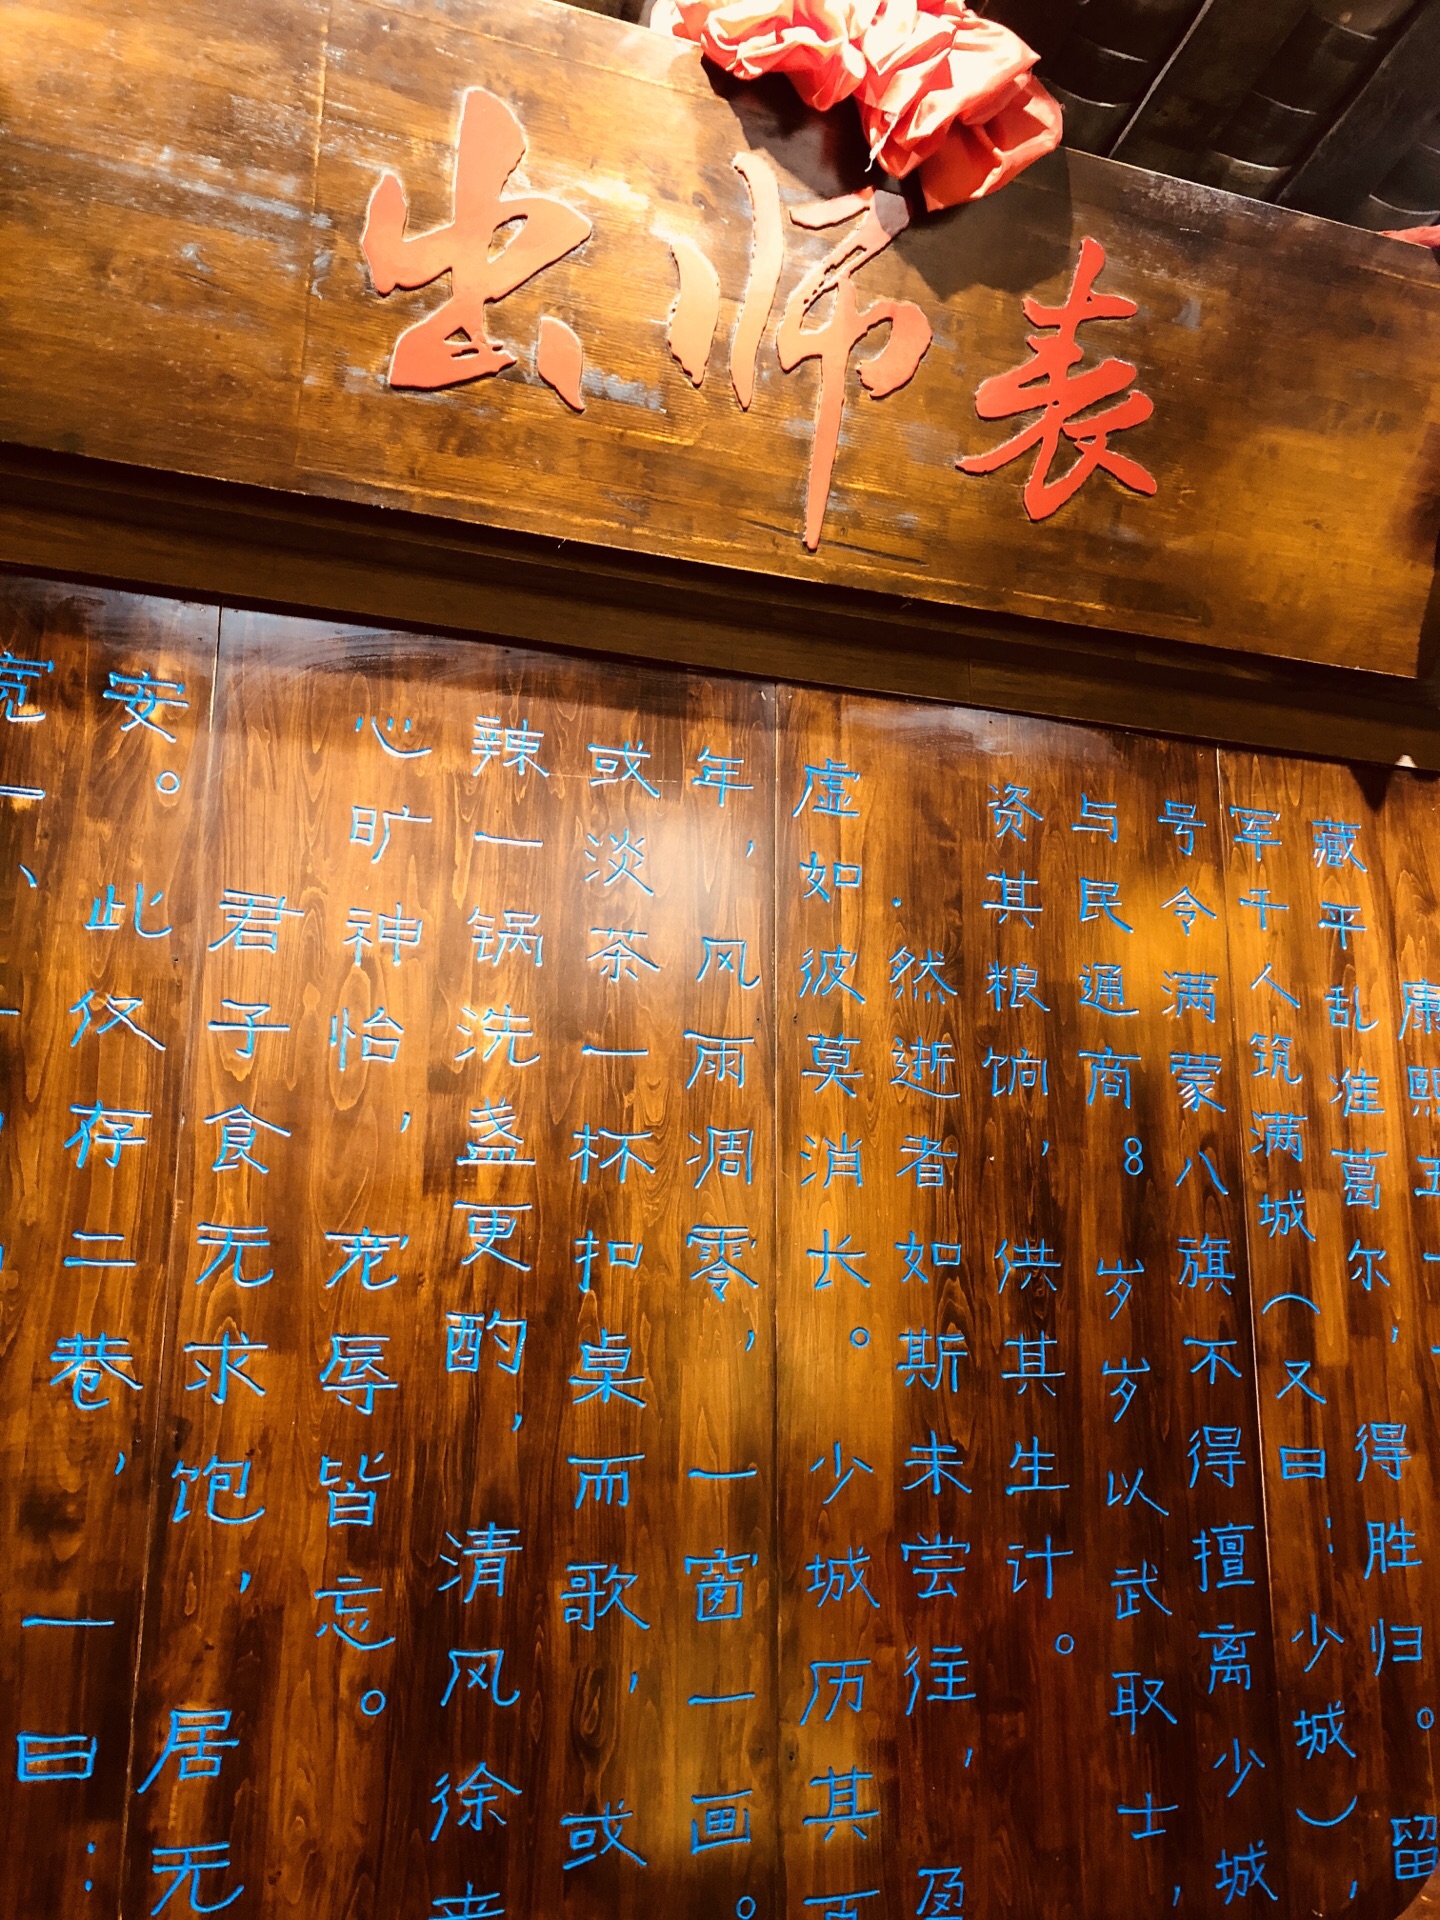 出师表
康熙五
藏平乱准葛尔，得胜归。留
军千人筑满城（又曰：少城），
号令满蒙八旗不得擅离少城
与民通商。岁岁以武取士，
资其粮饷，供其生计。
然逝者如斯未尝往，盈
虚如彼莫消长。少城历其百
年，风雨凋零，一窗一画。
或淡茶一杯扣桌而歌，或
辣一锅洗盏更酌，清风徐来
心旷神怡，宠辱皆忘。
君子食无求饱，居无
安。此仅存二巷，一曰：
宽